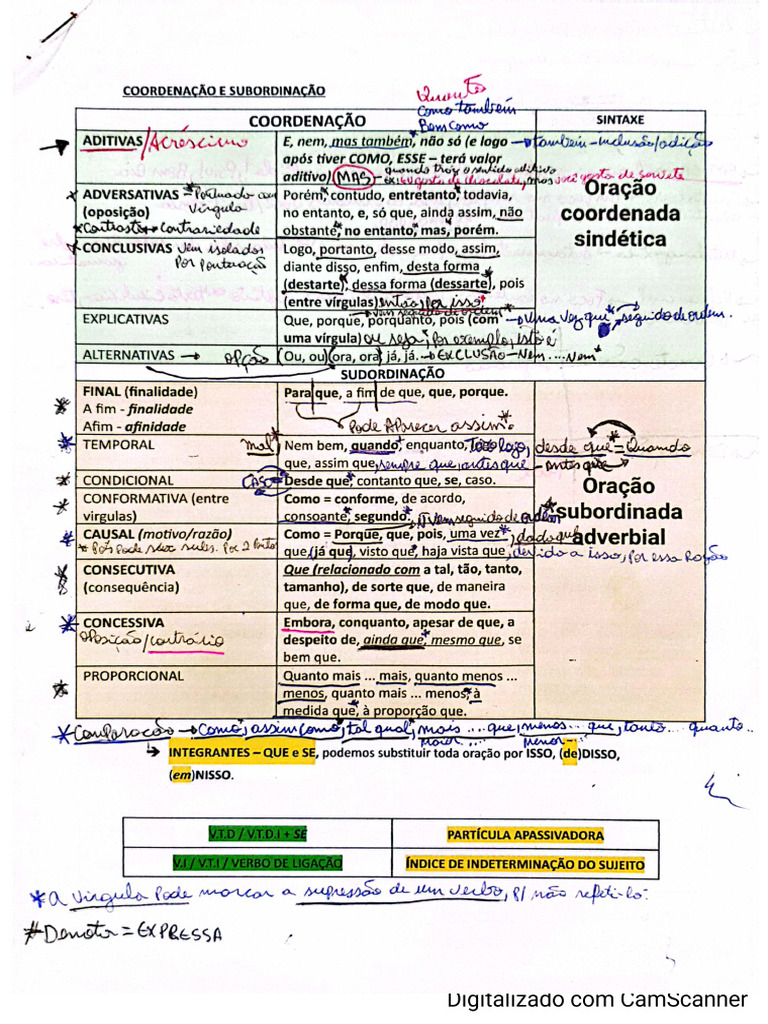 COORDENAÇÃO E SUBORDINAÇÃO
Quanto
como também
Bem como
COORDENAÇÃO
SINTAXE
ADITIVAS/Acréscimo
E, nem, mas também, não só (e logo → também - inclusão/adição
após tiver COMO, ESSE – terá valor
aditivo) (Mas) - quando traz o sentido aditivo
ex: eu gosto de chocolate, mas você gosta de sorvete
Oração
coordenada
sindética
ADVERSATIVAS - Pontuado com
(oposição) Vírgula
* Contraste → Contrariedade
Porém, contudo, entretanto, todavia,
no entanto, e, só que, ainda assim, não
obstante, no entanto, mas, porém.
* CONCLUSIVAS Vem isolados
Por pontuação
Logo, portanto, desse modo, assim,
diante disso, enfim, desta forma
(destarte), dessa forma (dessarte), pois
(entre vírgulas) então, por isso
EXPLICATIVAS
vem seguido de ordem
Que, porque, porquanto, pois (com → uma vez que * seguido de ordem.
uma vírgula) ou seja, por exemplo, isto é
ALTERNATIVAS → opção
(Ou, ou) (ora, ora) já, já. → EXCLUSÃO - Nem....Nem
SUDORDINAÇÃO
FINAL (finalidade)
A fim - finalidade
Afim - afinidade
Para que, a fim de que, que, porque.
Pode Aparecer assim.
* TEMPORAL
Mal, Nem bem, quando, enquanto, Todo logo, desde que = Quando
que, assim que, sempre que, antes que - antes que
* CONDICIONAL
CASO Desde que, contanto que, se, caso.
Oração
subordinada
adverbial
* CONFORMATIVA (entre
virgulas)
Como = conforme, de acordo,
consoante, segundo. Vem seguido de ordem
* CAUSAL (motivo/razão)
* Pois Pode ser subs. Por 2 Pontos
Como = Porque, que, pois, uma vez, dado que
que (já que, visto que, haja vista que, devido a isso, por essa Razão
* CONSECUTIVA
(consequência)
Que (relacionado com a tal, tão, tanto,
tamanho), de sorte que, de maneira
que, de forma que, de modo que.
* CONCESSIVA
oposição/contrário
Embora, conquanto, apesar de que, a
despeito de, ainda que, mesmo que, se
bem que.
* PROPORCIONAL
Quanto mais ... mais, quanto menos ...
menos, quanto mais ... menos, à
medida que, à proporção que.
* Comparação → Como, assim como, tal qual, mais ... que, menos ... que, tanto... quanto..
maior.... menor-...
INTEGRANTES – QUE e SE, podemos substituir toda oração por ISSO, (de)DISSO,
(em)NISSO.
V.T.D / V.T.D.I + SE
PARTÍCULA APASSIVADORA
V.I / V.T.I / VERBO DE LIGAÇÃO
ÍNDICE DE INDETERMINAÇÃO DO SUJEITO
* A vírgula Pode marcar a supressão de um verbo, p/ não repeti-lo.
# Denota = EXPRESSA
Digitalizado com CamScanner